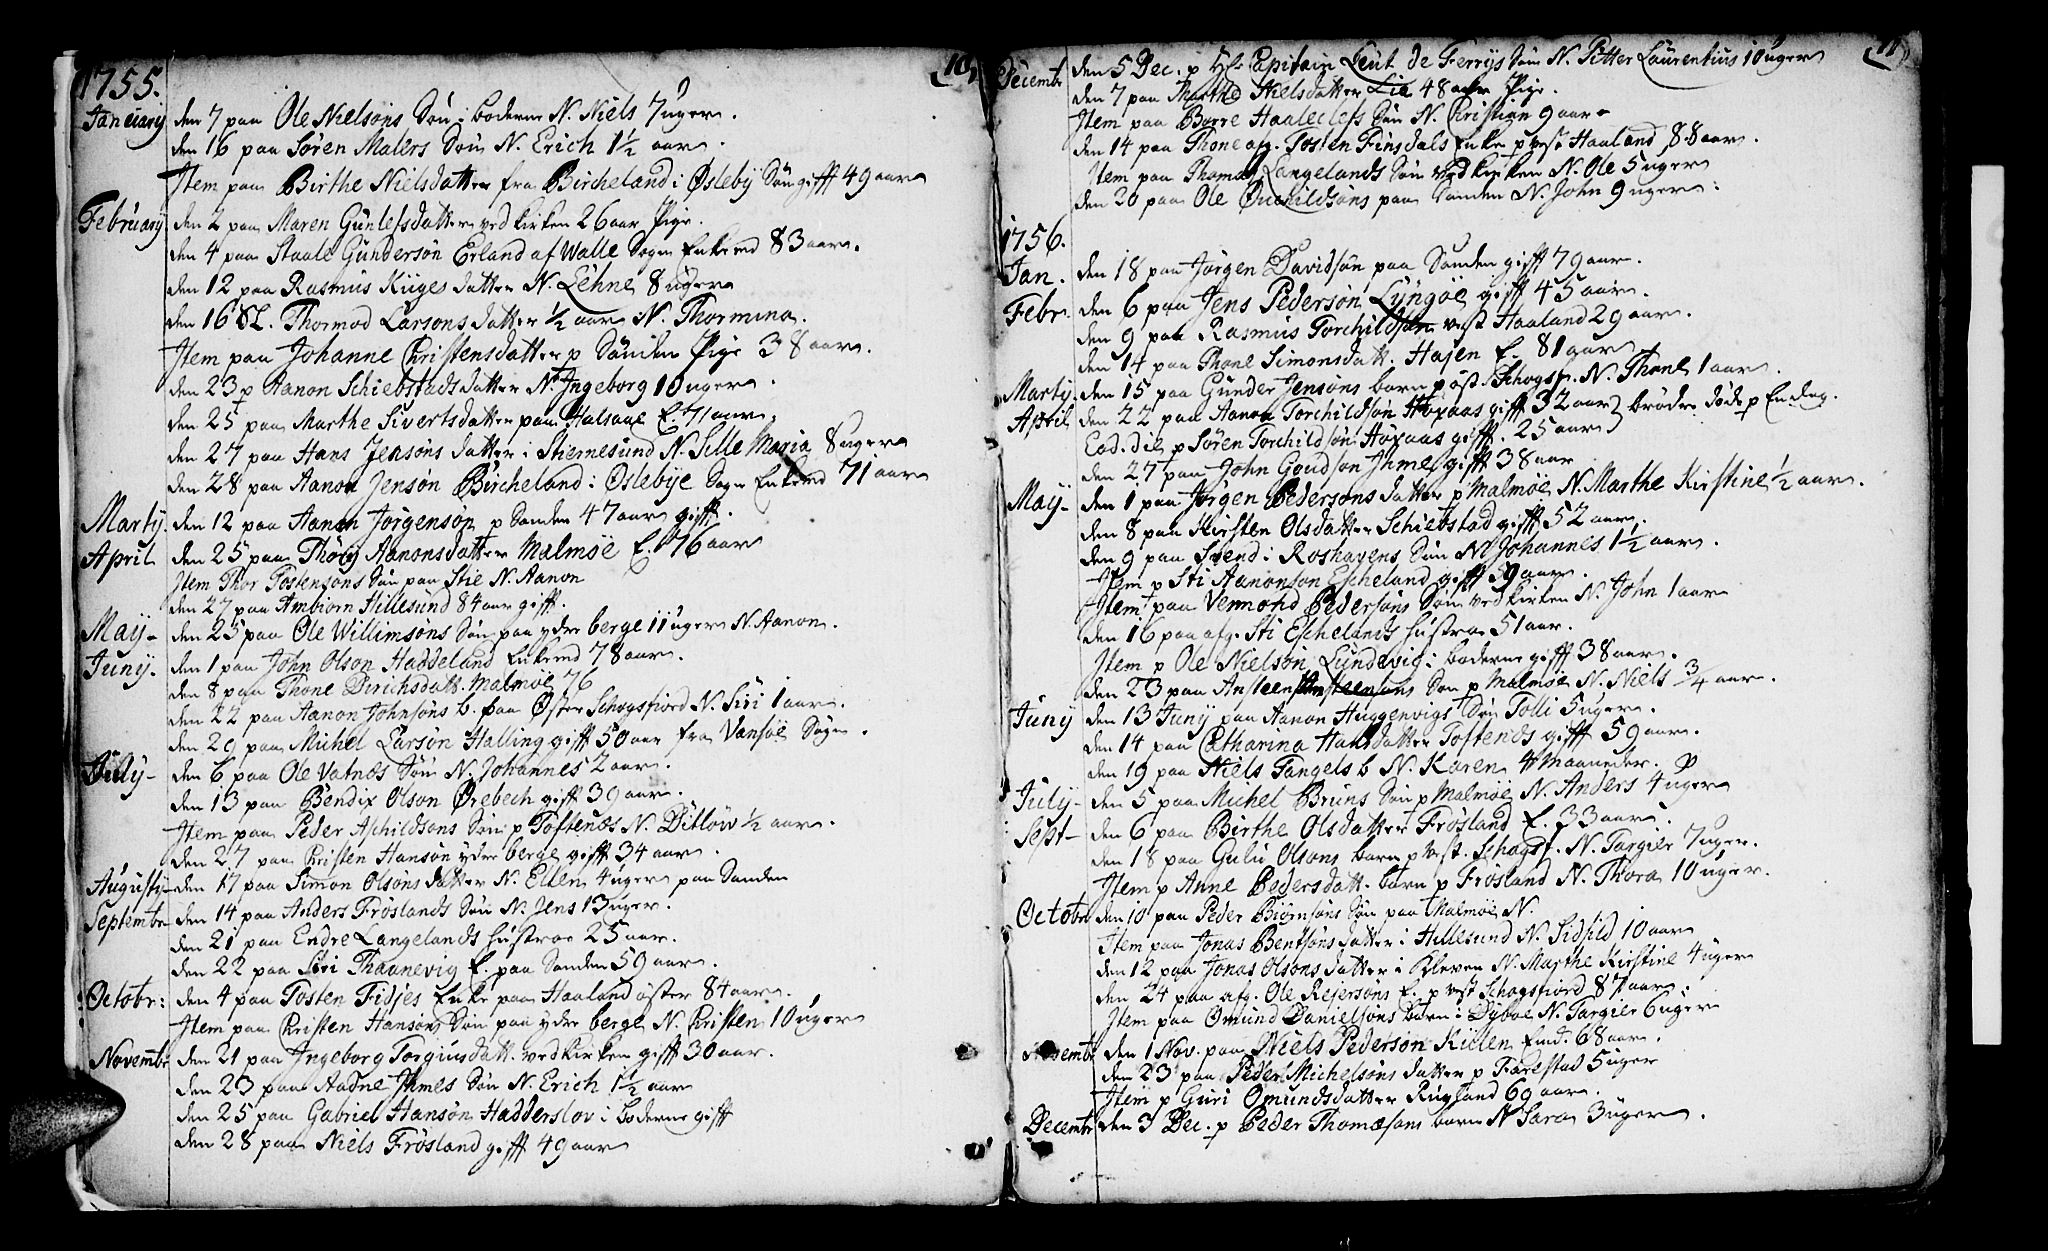 10.
1755.
January den 7 paa Ole Nielsøns Søn i boderne N. Niels 7 uger.
den 16 paa Søren Malers Søn N. Erich 1½ aar.
Item paa Birthe Nielsdatter fra Bircheland i Øslebÿ Sogn gifft 49 aar
February den 2 paa Maren Gunlefsdatter ved kirken 26 aar Pige.
den 4 paa Staale Gundersøn Erland af Walle Sogn Enkemd 83 aar.
den 12 paa Rasmus Kuges datter N. Lehne 8 uger
den 16 Thormod Larsons datter ½ aar N. Thormina.
Item paa Johanne Christensdatter p Sanden Pige 38 aar.
den 23 p Aanon Schiebstads datter N. Ingeborg 10 uger.
den 25 paa Marthe Sivertsdatter paa Halsaae E. 71 aar.
den 27 paa Hans Jensøns datter i Stiernesund N. Sille Maria 8 uger
den 28 paa Aanon Jensøn Bircheland i Øslebÿe Sogn Enkemd 71 aar
Martÿ. den 12 paa Aanon Jørgensøn p Sanden 47 aar gifft.
April den 25 paa Thorÿ Aanonsdatter Malmøe E. 76 aar
Item Thor Tostensøns Søn paa Stie N. Aanon
den 27 paa Ambiorn Hillesund 84 aar gifft.
Maÿ- den 25 paa Ole Willimsøns Søn paa ÿdre berge 11 uger N. Aanon.
Junÿ. den 1 paa John Olson Haddeland Enkemd 78 aar.
den 8 paa Thone Dirichsdatt. Malmøe 76
den 22 paa Aanon Johnsøns b. paa Øster Schogsfiord N. Siri 1 aar.
den 29 paa Michel Larsøn Halling gifft 50 aar fra Vansøe Sogn.
Julÿ- den 6 paa Ole Vatnes Søn N. Johannes 2 aar.
den 13 paa Bendix Olson Ørebech gifft 39 aar.
Item paa Peder Aschildsons Søn p Toftenes N. Ditlow ½ aar.
den 27 paa Christen Hansøn ÿdre berge gifft 34 aar.
Augustÿ- den 17 paa Simon Olsøns datter N. Ellen 4 uger paa Sanden
Septembr den 14 paa Anders Frøslands Søn N. Jens 13 uger.
den 21 paa Endre Langelands Hustroe 25 aar.
den 22 paa Siri Thaanevig E. paa Sanden 59 aar.
Octobr: den 4 paa Tosten Fidjes Enke paa Haaland øster 84 aar.
Item paa Christen Hansøns Søn paa ÿdre berge N. Christen 10 uger
Novembr den 21 paa Ingeborg Torgiusdatt. ved kirken gifft 30 aar.
den 23 paa Aadne Ihmes Søn N. Erich 1½ aar
den 25 paa Gabriel Hansøn Hadderslov i Boderne gifft
den 28 paa Niels Frøsland gifft 49 aar
11
Decembr den 5 Dec. p Hr Capitain Leut de Ferrÿs Søn N. Pitter Laurentius 10 uger
den 7 paa Marthe Nielsdatter Lie 48 aar Pige.
Item paa Børre Haalelefs Søn N. Christian 9 aar
den 14 paa Thone afg. Tosten Finsdals Enke p vest Haaland 88 aar.
Item paa Thomas Langelands Søn ved kirken N. Ole 5 uger
den 20 paa Ole Øuchildsøns paa Sanden N. John 9 uger.
1756.
Jan. den 18 paa Jørgen Davidsøn paa Sanden gifft 79 aar.
Febr. den 6 paa Jens Pedersøn Lÿngøe gifft 45 aar.
den 9 paa Rasmus Torchildsøn vest Haaland 29 aar.
den 14 paa Thone Simonsdatt. Hajen E. 81 aar
Martÿ. den 15 paa Gunder Jensøns barn p øst. Schogsf. N. Thone 1 aar.
April den 22 paa Aanon Torchildsøn Høxaas gifft 32 aar } brødre døde p En dag.
Eod. die p Søren Torchildsøn Høxaas gifft. 25 aar
den 27 paa John Goudson Ihme gifft 38 aar
Maÿ- den 1 paa Jørgen Pedersøns datter p Malmøe N. Marthe Kirstine ½ aar.
den 8 paa Kirsten Olsdatter Schiebstad gifft 52 aar.
den 9 paa Svend i Roshavens Søn N. Johannes 1½ aar.
Item p Sti Aanonson Escheland gifft 59 aar.
Item paa Vermond Pedersøns Søn ved kirken N. John 1 aar
den 16 paa afg. Sti Eschelands Hustroe 51 aar.
Item p Ole Nielsøn Lundevig i boderne gifft 38 aar.
den 23 paa Ansteen Ansteensøns Søn p Malmøe N. Niels ¾ aar.
Junÿ den 13 Junÿ paa Aanon Huggenvigs Søn Tolli 5 uger.
den 14 paa Catharina Hansdatter Toftenes gifft 59 aar.
den 19 paa Niels Tangels b N. Karen 4 Maaneder.
Julÿ- den 5 paa Michel Bruns Søn p Malmøe N. Anders 4 uger
Sept- den 6 paa Birthe Olsdatter Frøsland E. 33 aar.
den 18 paa Gulu Olsons barn p vest. Schogsf. N. Targier 7 uger.
Item p Anne Pedersdatt. barn p Frøsland N. Thora 10 uger.
Octobr den 10 paa Peder Biørnsøns Søn paa Malmøe N.
Item paa Jonas Bentsøns datter i Hillesund N. Sidsild 10 aar
den 12 paa Jonas Olsons datter i Kleven N. Marthe Kirstine 4 uger
den 24 paa afg. Ole Rejersøns E. p vest Schogsfiord 87 aar.
Item paa Omund Danielsøns barn i Dÿboe N. Targier 6 uger
Novembr den 1 Nov. paa Niels Pedersøn Killen Emd. 68 aar.
den 23 paa Peder Michelsøns datter p Farestad 5 uger
Item p Guri Omundsdatter Rugsland 69 aar.
Decembr den 3 Dec. p Peder Thomæsøns barn N Sara 3 uger.